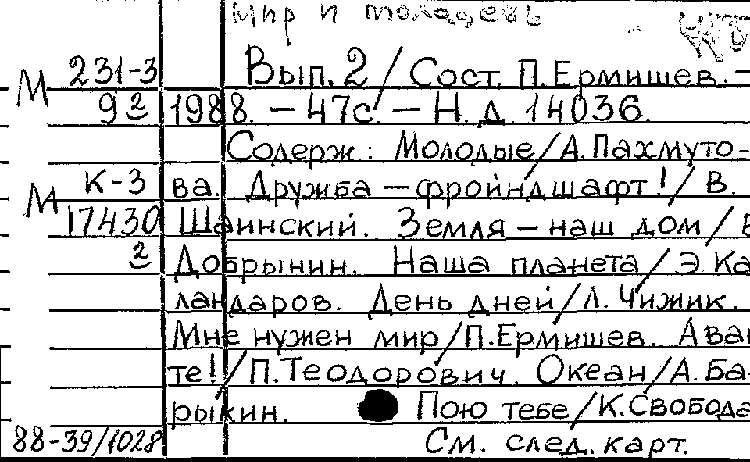 Мир и молодежь
М 231-3 Вып. 2 / Сост. П. Ермишев. –
9 2 1988. – 47с. – Н. д. 14036.
Содерж: Молодые / А. Пахмуто-
М К-3 ва. Дружба – фройндшафт! / В.
17430 Шаинский. Земля – наш дом / В
2 Добрынин. Наша планета / Э. Ка
ландаров. День дней / Л. Чижик.
Мне нужен мир / П. Ермишев. Аван
те! / П. Теодорович. Океан / А. Ба-
рыкин. Пою тебе / К. Свобода
88-39/1028 См. след. карт.